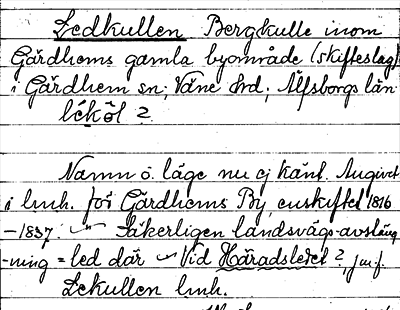 Ledkullen Bergkulle inom
Gärdhems gamla byområde (skifteslag)
i Gärdhem sn; Väne hrd; Älfsborgs län
lékôl 2
Namn o. läge nu ej känt. Angivet
i lmh. för Gärdhems By, enskiftet 1816
-1837. Säkerligen landsvägs-avstäng
-ning = led där Vid Häradsledet ?, jmf.
Lekullen lmh.